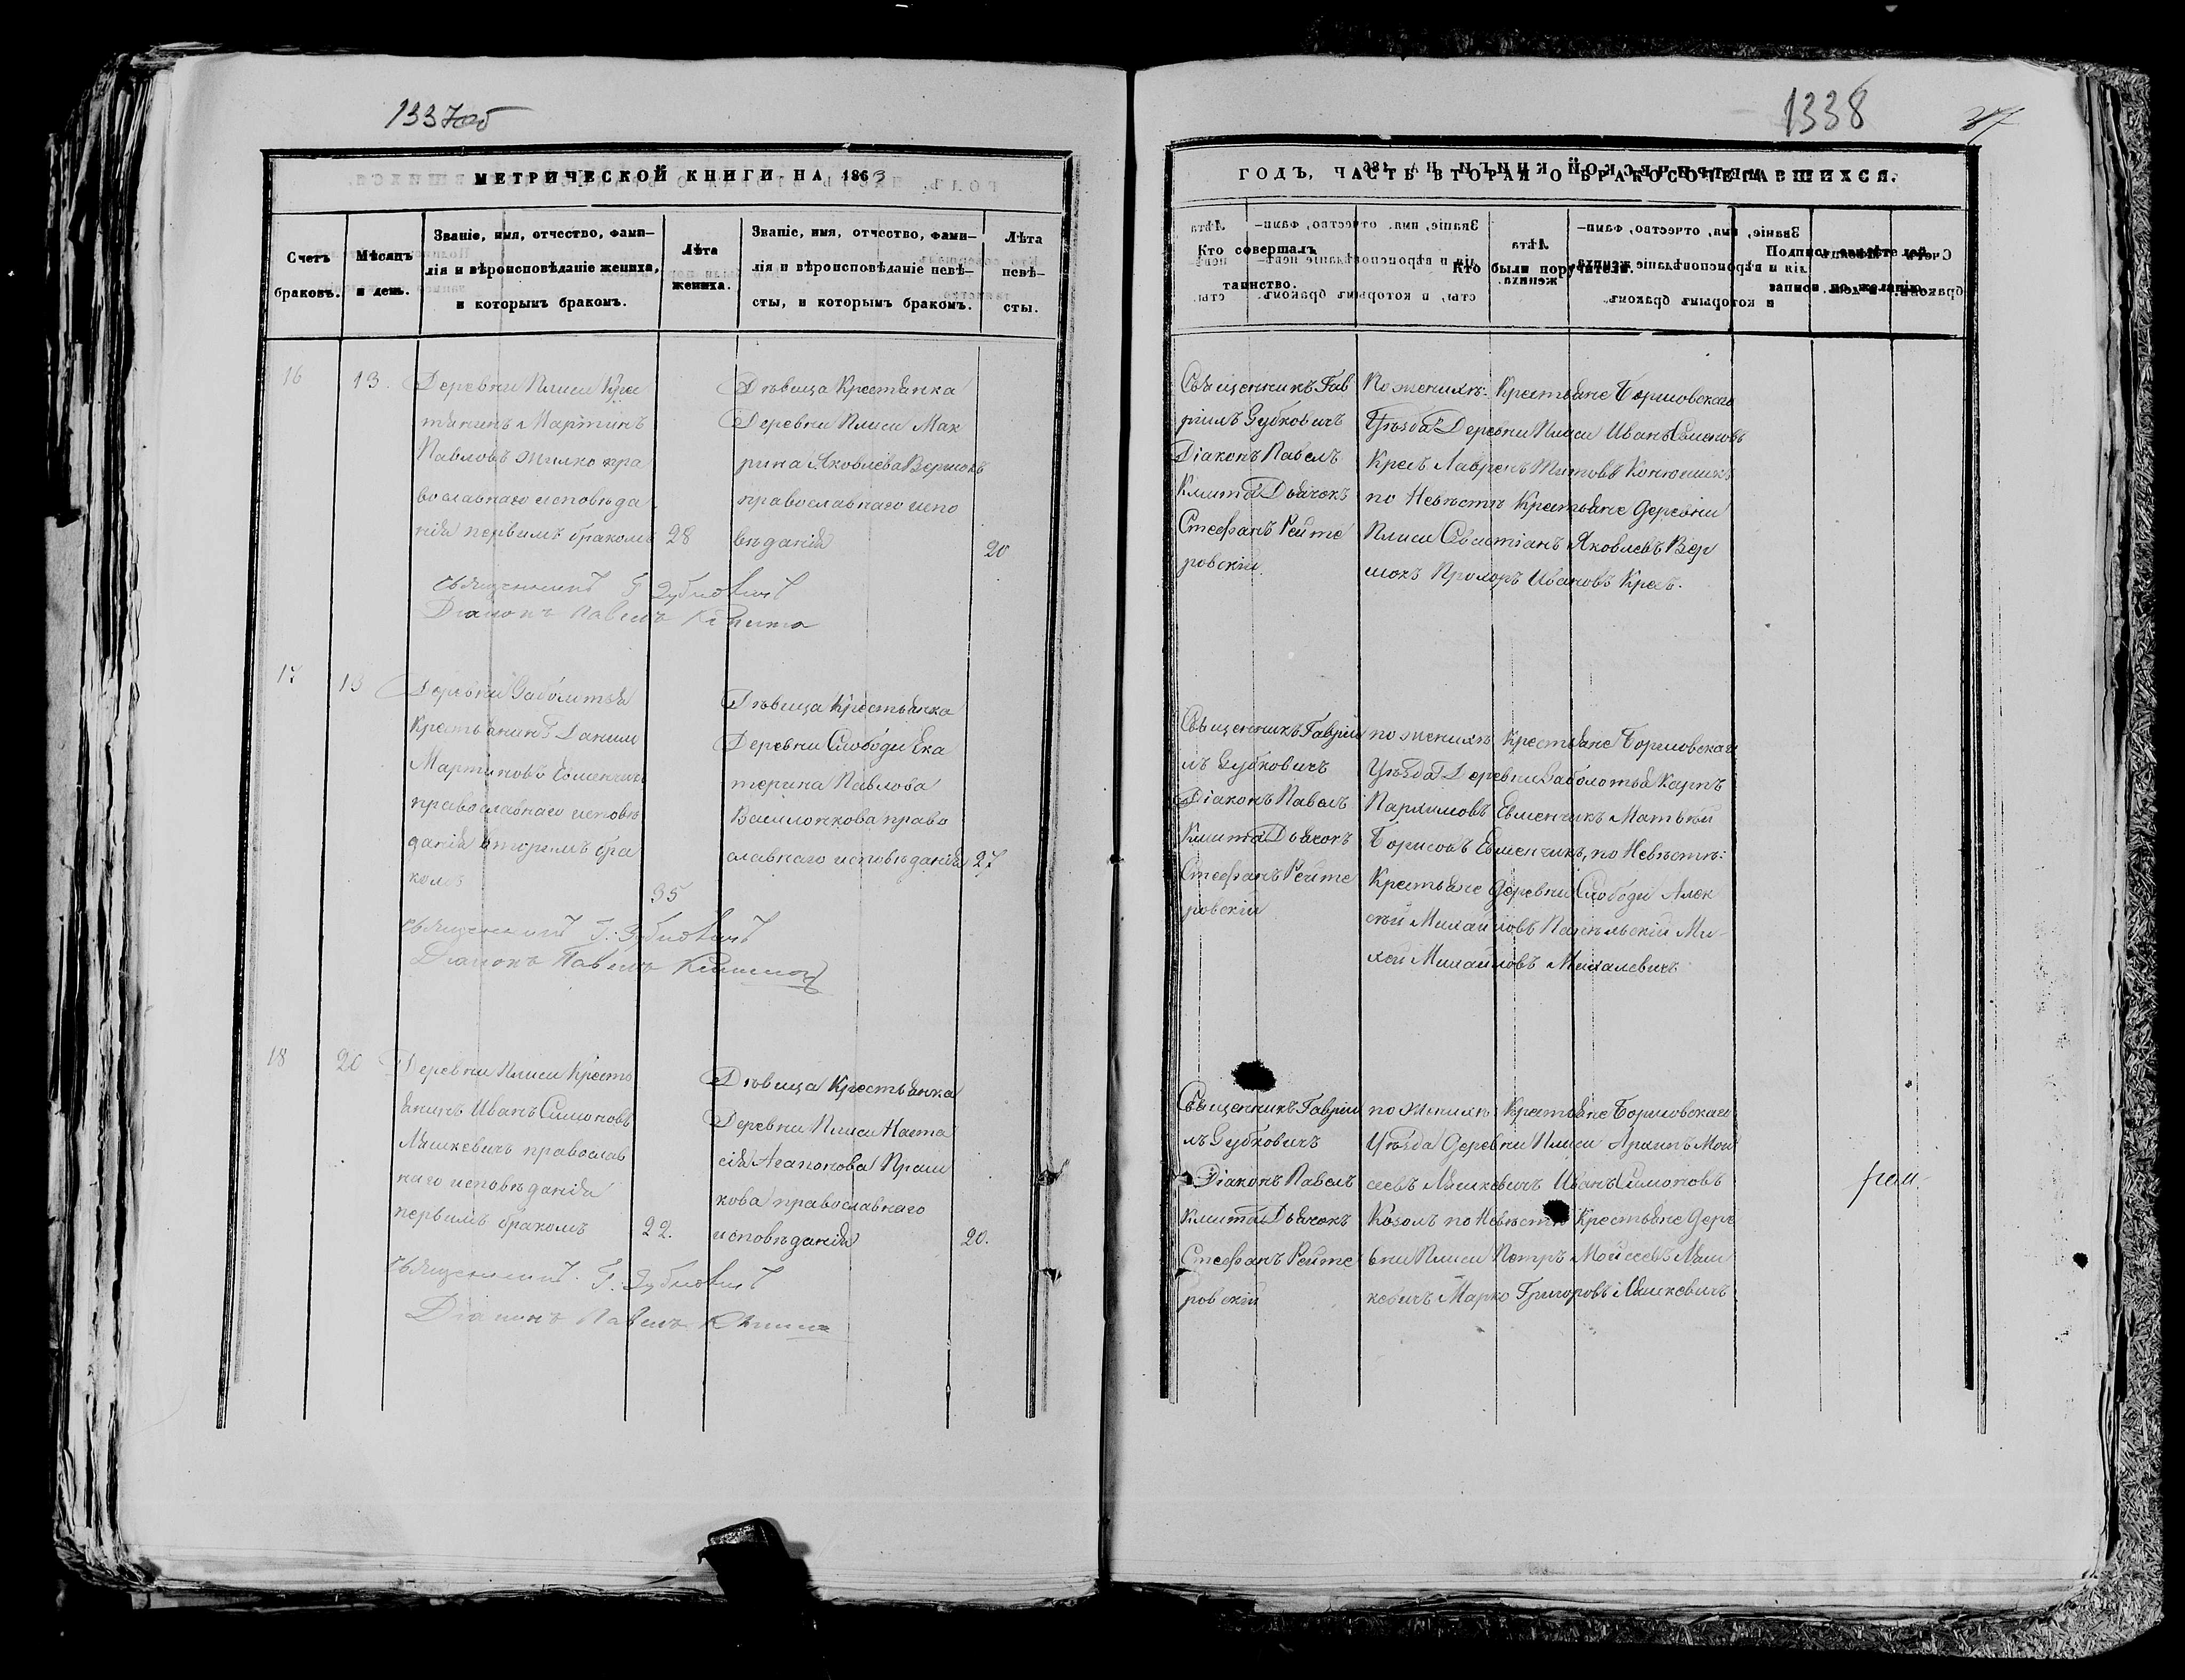 1337об
МЕТРИЧЕСКОЙ КНИГИ НА 1863
Счетъ браковъ.
Мѣсяцъ и день.
Званіе, имя, отчество, фами-
лія и вѣроисповѣданіе жениха,
и которымъ бракомъ.
Лѣта жениха.
Званіе, имя, отчество, фами-
лія и вѣроисповѣданіе невѣ-
сты, и которымъ бракомъ.
Лѣта невѣ-
сты.
16
13.
Деревни Плиси Крес
тянинъ Мартинъ
Павловъ Жилко пра
вославнаго исповѣда
нія первымъ бракомъ
28
Дѣвица Крестьянка
Деревни Плиси Мак
рина Яковлева Вершокъ
православнаго испо
вѣданія
20
Священникъ Г. Зубковичъ
Діаконъ Павелъ Кмита
17
13
Деревни Заболотья
Крестьянинъ Данило
Мартиновъ Евменчикъ
православнаго исповѣ
данія вторымъ бра
комъ
35
Дѣвица Крестьянка
Деревни Слободы Ека
терина Павлова
право
славнаго исповѣданія
27
Священникъ Г. Зубковичъ
Діаконъ Павелъ Кмита
18
20
Деревни Плиси Кресть
янинъ Иванъ Симоновъ
Мяшкевичъ православ
наго исповѣданія
первымъ бракомъ
22.
Дѣвица Крестьянка
Деревни Плиси Наста
сія Агапонова Праш
кова православнаго
исповѣданія
20.
Священникъ Г. Зубковичъ
Діаконъ Павелъ Кмита
1338
37
ГОДЪ, ЧАСТЬ ВТОРАЯ О БРАКОСОЧЕТАВШИХСЯ.
Кто совершалъ
таинство.
Кто были поручители.
Подпись свидѣтелей
записи по желанію
Священникъ Гав
ріилъ Зубковичъ
Діаконъ Павелъ
Кмита Дьячокъ
Стефанъ Рейте
ровскій
По женихѣ: Крестьяне Борисовскаго
Уѣзда Деревни Плиси Иванъ Семеновъ
Кресъ Лавренъ Титовъ Конюшикъ
по Невѣстѣ Крестьяне Деревни
Плиси Севитіанъ Яковлевъ Вер
шокъ Прохоръ Ивановъ Кресъ.
Священникъ Гавріи
лъ Зубковичъ
Діаконъ Павелъ
Кмита Дьячокъ
Стефанъ Рейте
ровскій
по женихѣ Крестьяне Борисовскаго
Уѣзда Деревни Заболотья Карпъ
Пархимовъ Евменчикъ Матвѣй
Борисовъ Евменчикъ, по Невѣстѣ:
Крестьяне Деревни Слободы Алек
сѣй Михайловъ Ми-
хей Михайловъ Михалевичъ
Священникъ Гавріи
лъ Зубковичъ
Діаконъ Павелъ
Кмита Дьячокъ
Стефанъ Рейте
ровскій
по женихѣ Крестьяне Борисовскаго
Уѣзда Деревни Плиси Архипъ Мои
сеевъ Мяшкевичъ Иванъ Симоновъ
Козолъ по Невѣстѣ Крестьяне Дере
вни Плиси Петръ Мойсеевъ Мяш
кевичъ Марко Григоровъ Мяшкевичъ